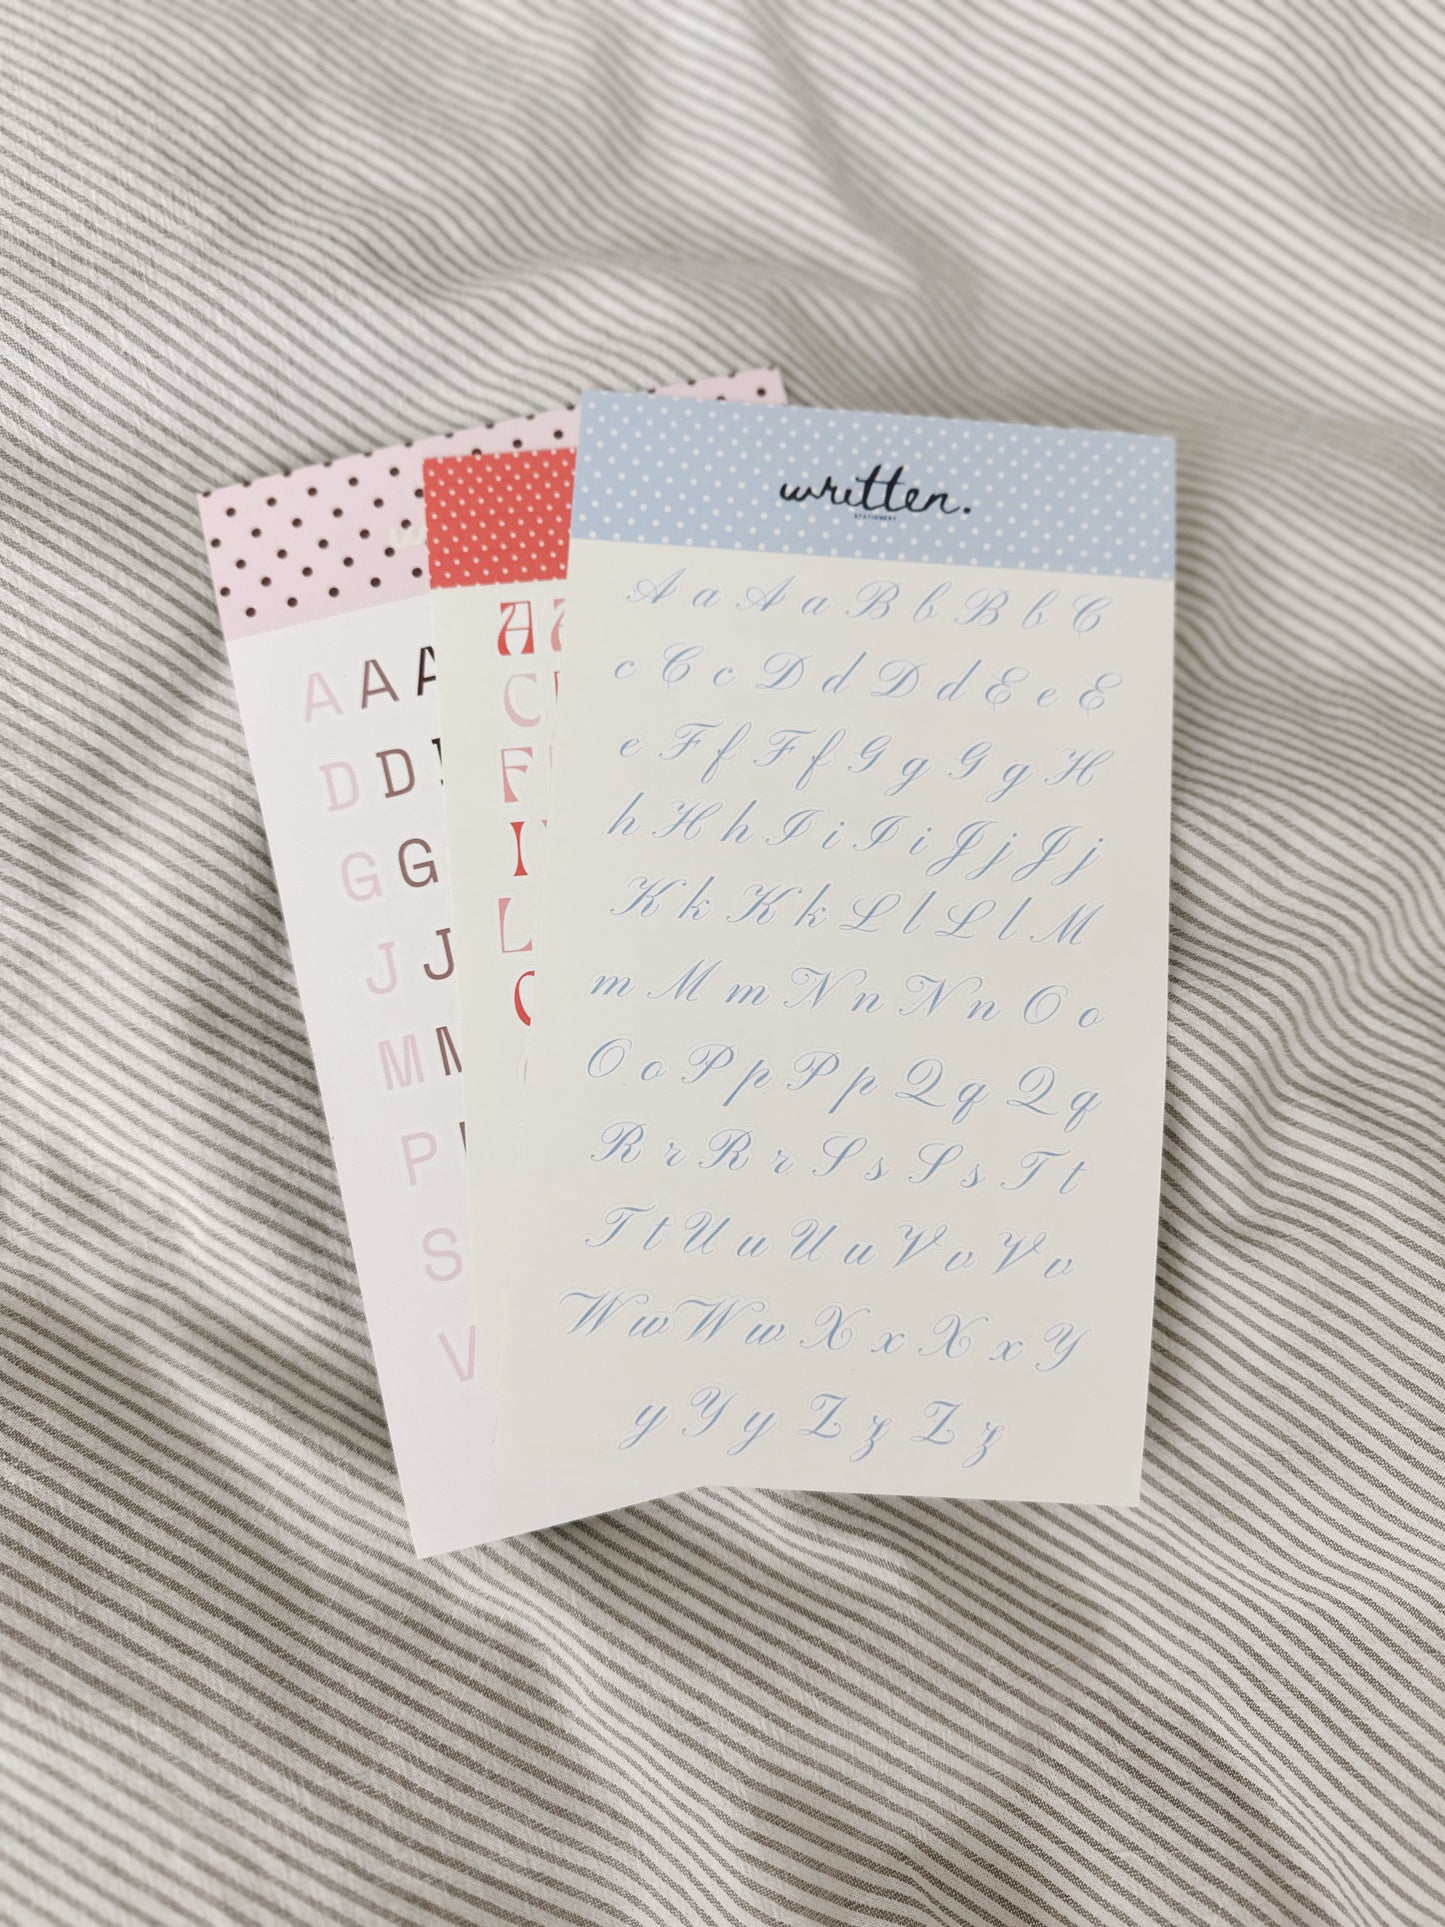 written.
STATIONERY
A a A a B b B b C
c C c D d D d E e E
e F f F f G g G g H
h H h I i I i J j J j
K k K k L l L l M
m M m N n N n O o
O o P p P p Q q Q q
R r R r S s S s T t
T t U u U u V v V v
W w W w X x X x Y
y Y y Z z Z z
A
C
F
I
L
A A A
D D
G G
J J
M M
P
S
V